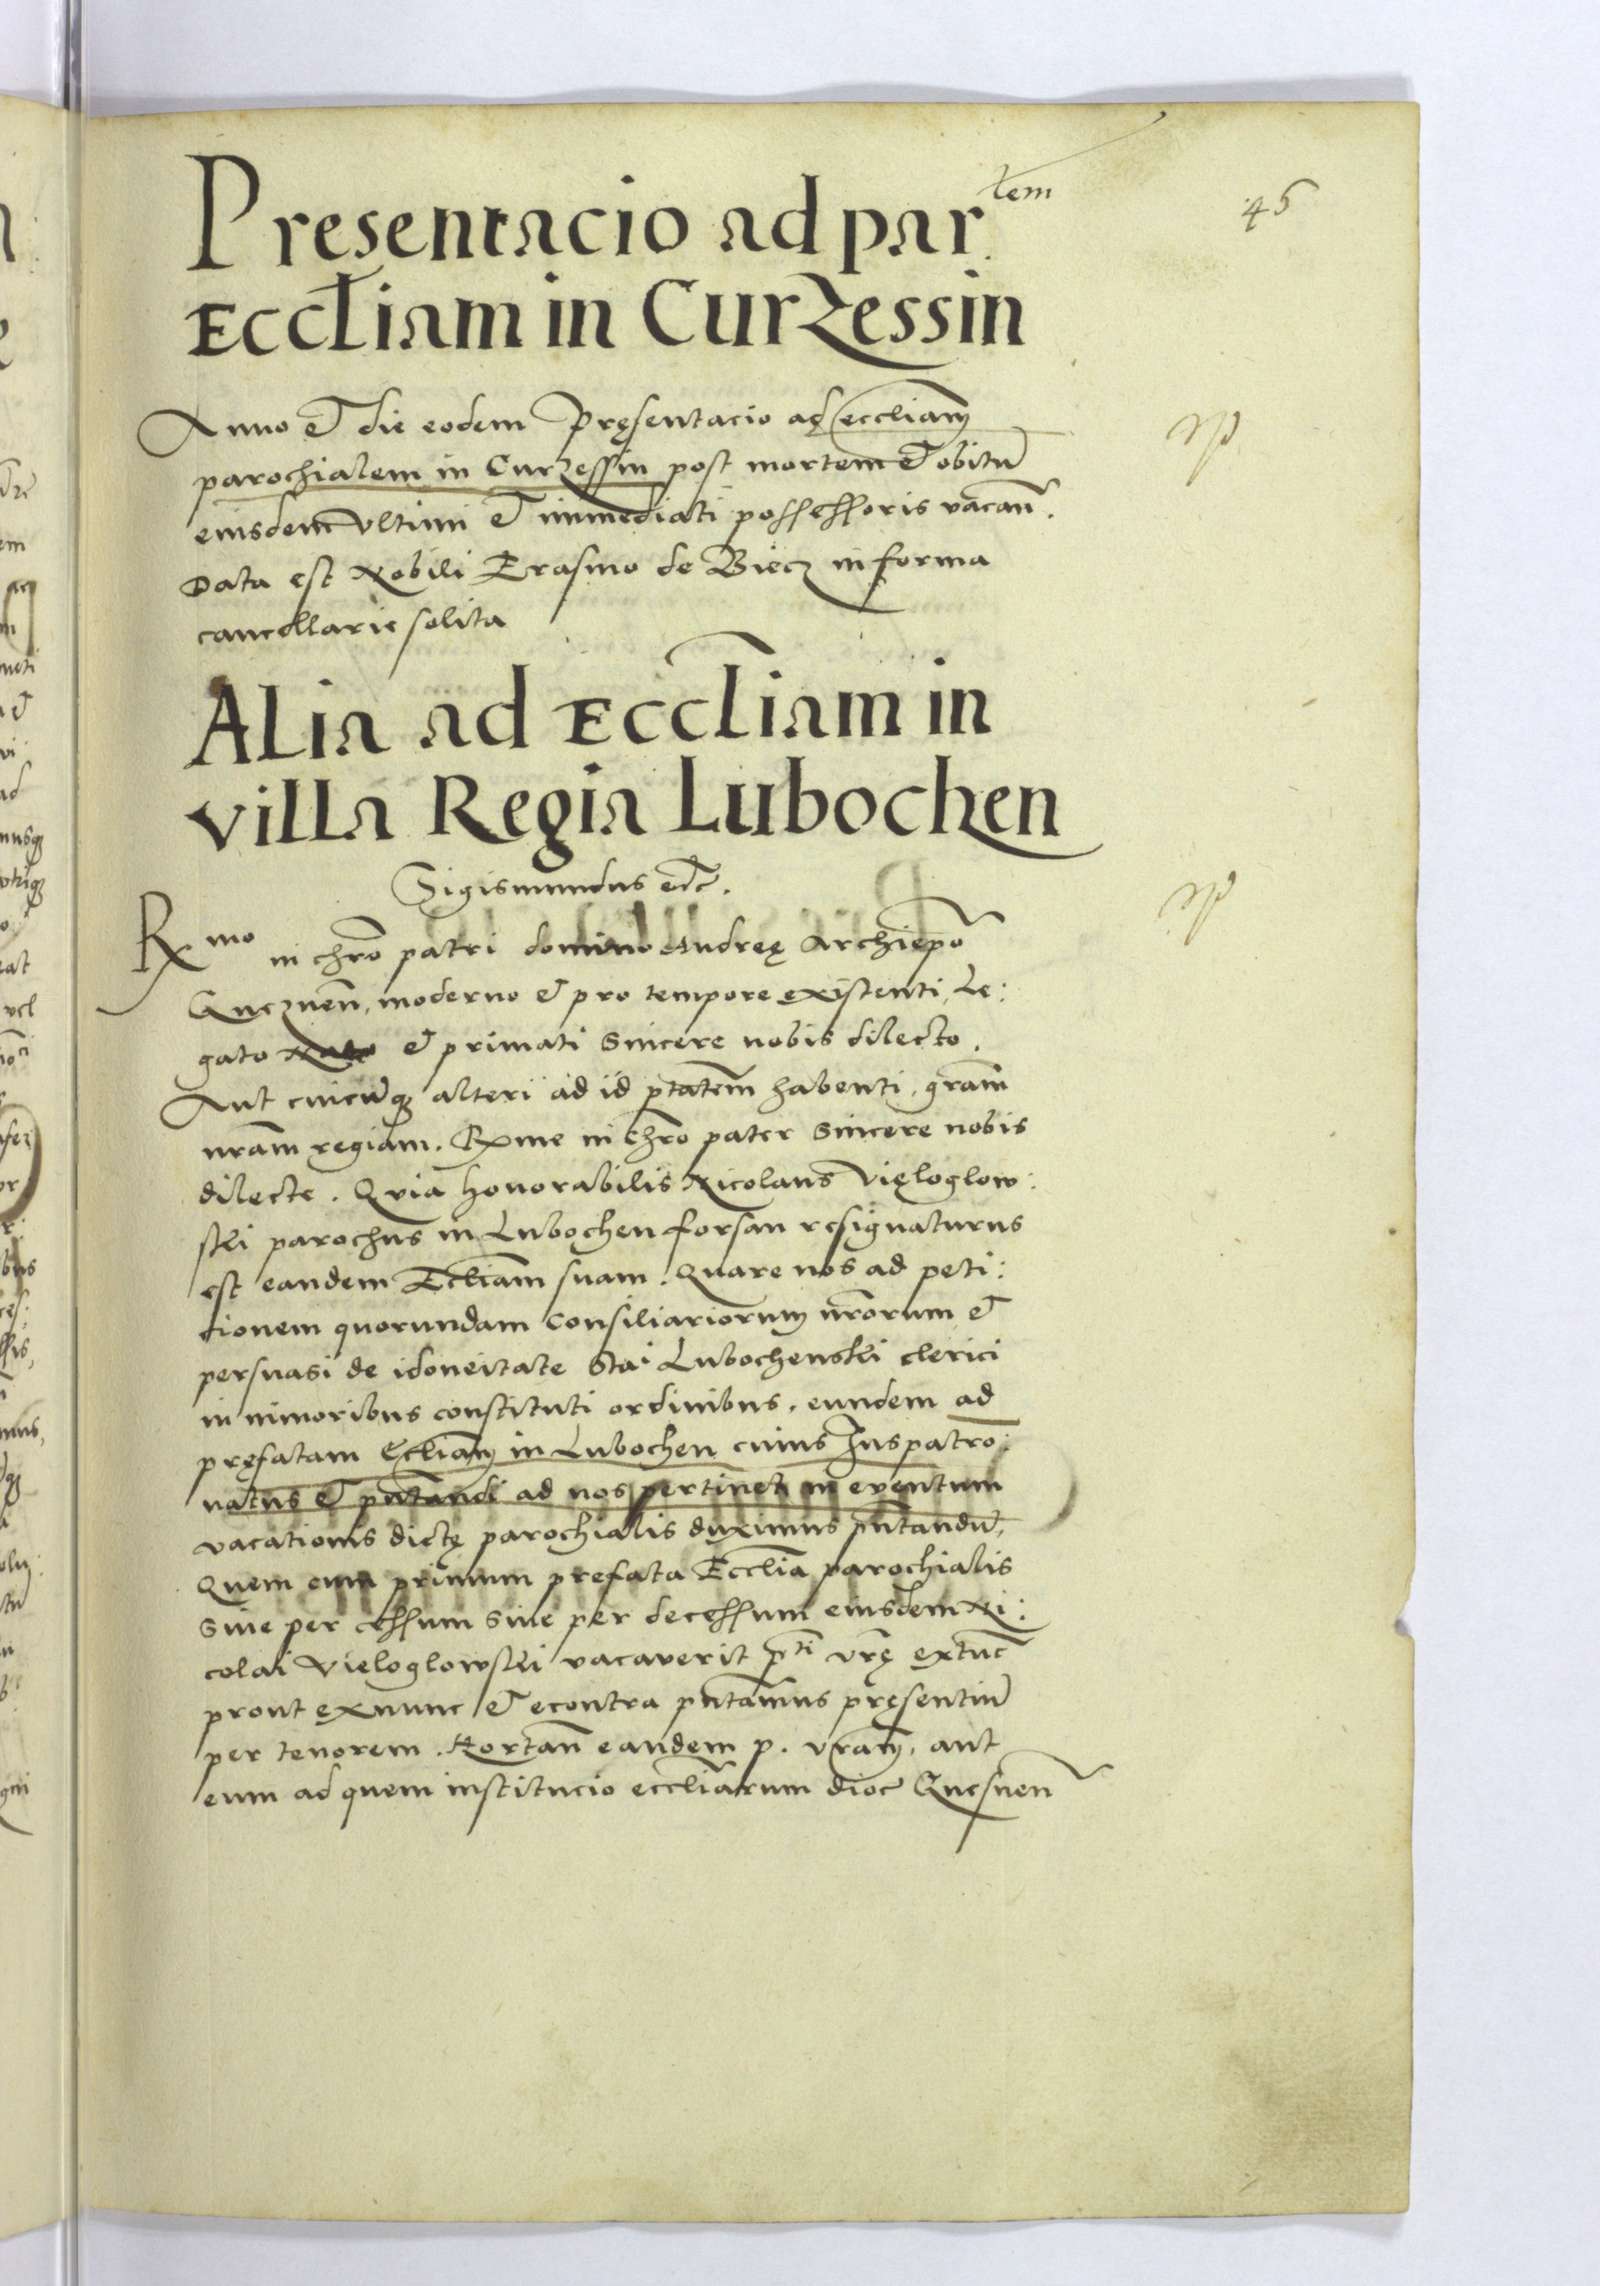 45
Presentacio ad par.tem
Eccliam in Curzessin
Anno et die eodem Pręsentacio ad eccliam
parochialem in Curzessin post mortem et obitū
eiusdem vltimi et immediati possessoris vacan̄.
Data est Nobili Erasmo de Biecz in forma
cancellarie solita
Alia ad Eccliam in
villa Regia Lubochen
Sigismundus etc.
Rmo in chr̄o patri domino Andreę Archiepō
Gneznen̄, moderno et pro tempore existenti, Le:
gato Nato et primati Sincere nobis dilecto.
Aut cuicūq; alteri ad id p̄tatem habenti, gr̄am
nr̄am regiam. Rx̄me in chr̄o pater Sincere nobis
dilecte. Qvia honorabilis Nicolaus Vięloglow:
ski parochus in Lubochen forsan resignaturus
est eandem Ecl̄iam suam. Quare nos ad peti:
tionem quorundam Consiliariorum nr̄orum et
persuasi de idoneitate Stai Lubochenski clerici
in minoribus constituti ordinibus, eundem ad
pręfatam Ecl̄iam in Lubochen cuius Ius patro:
natus et pn̄tandi ad nos pertinet, in eventum
vacationis dictę parochialis duximus pn̄tandū,
Quem cum primum prefata Eccl̄ia parochialis
Siue per cessum Siue per decessum eiusdem Ni:
colai Vieloglowski vacaverit p̄ti vr̄ę extūc
prout exnunc et econtra pn̄tamus pręsentiū
per tenorem. Hortan̄ eandem p. vr̄am, aut
eum ad quem institucio eccl̄iarum dioc Gnesnen̄